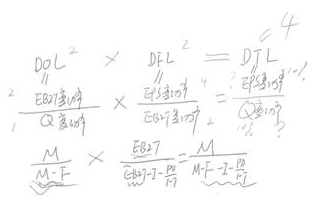 4
DOL² × DFL² = DTL
‖ ‖ ‖
2 EBIT变动率 4 ? EPS变动率 10%?
EPS变动率
1 Q变动率 × EBIT变动率 2 = Q变动率
10% ?
M × EBIT = M
M-F EBIT-I-PD/1-T M-F-I-PD/1-T